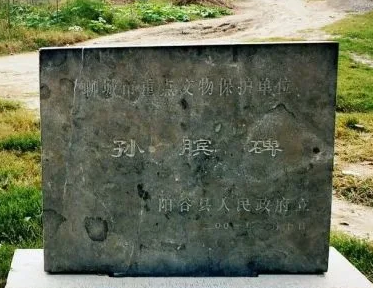 聊城市重点文物保护单位
孙膑碑
阳谷县人民政府立